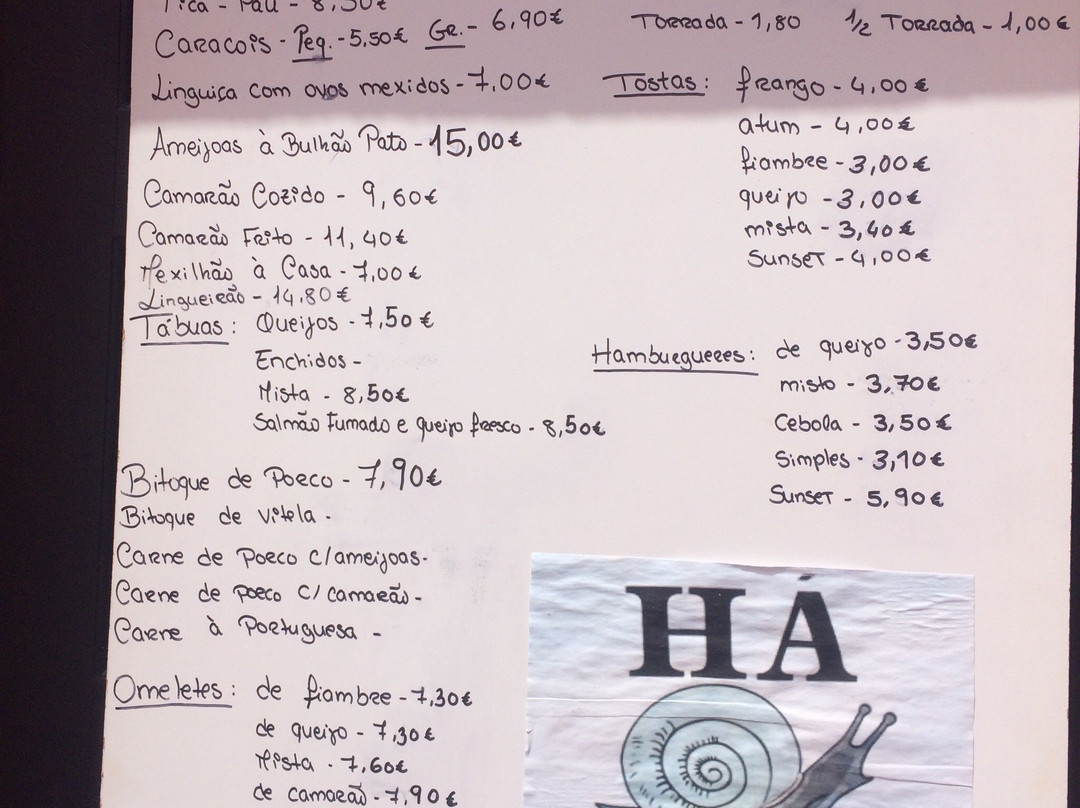 Pica - Pau - 8,50€
Caracois - Peq. - 5,50€ Gr. - 6,90€
Linguiça com ovos mexidos - 7,00€
Ameijoas à Bulhão Pato - 15,00€
Camarão Cozido - 9,60€
Camarão Frito - 11,40€
Mexilhão à Casa - 7,00€
Lingueirão - 14.80€
Tábuas: Queijos - 7,50€
Enchidos -
Mista - 8,50€
Salmão Fumado e queijo fresco - 8,50€
Bitoque de Porco - 7,90€
Bitoque de vitela -
Carne de Porco c/ameijoas -
Carne de porco c/ camarão -
Carne à Portuguesa -
Omeletes: de fiambre - 7,30€
de queijo - 7,30€
Mista - 7,60€
de camarão - 7,90€
Torrada - 1,80 1/2 Torrada - 1,00€
Tostas: frango - 4,00€
atum - 4,00€
fiambre - 3,00€
queijo - 3,00€
mista - 3,40€
Sunset - 4,00€
Hamburgueres: de queijo - 3,50€
misto - 3,70€
Cebola - 3,50€
Simples - 3,10€
Sunset - 5,90€
HÁ